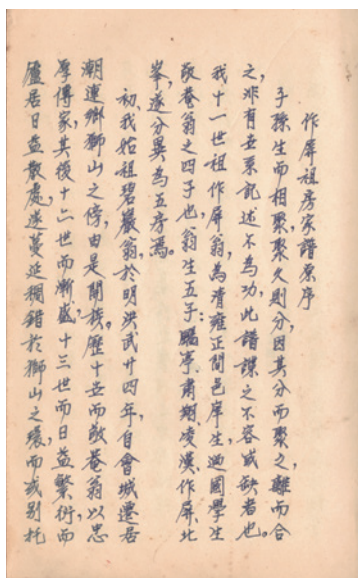 作屏祖房家譜原序
子孫生而相聚，聚久則分，因其分而聚之，離而合
之，非有世系記述不為功，此譜諜之不容或缺者也。
我十一世祖作屏翁，為清雍正間邑庠生，廻國學生
敬菴翁之四子也，翁生五子：鵬亭、肅期、凌漢、作屏、北
峯，遂分異為五房焉。
初，我始祖碧巖翁，於明洪武廿四年，自會城遷居
潮連鄉獅山之傍，由是開族。歷十世而敬菴翁以忠
厚傳家，其後十六世而漸盛，十三世而日益繁衍，而
廬居日益散處，迷蔓延稠錯於獅山之環，而或別托